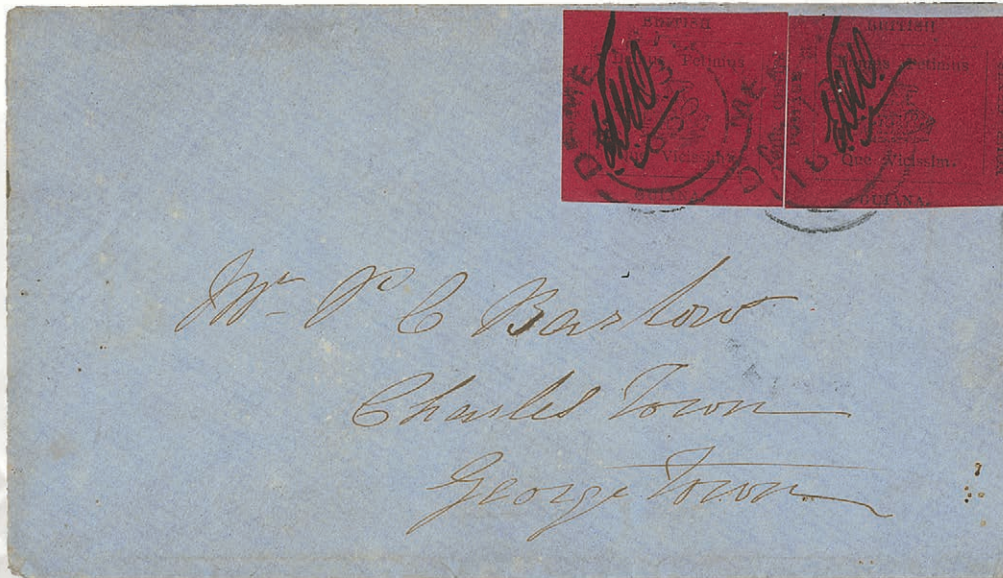 British
Damus Petimus
Que Vicissim.
British
Damus Petimus
Que Vicissim.
GUIANA.
DEME
DEME
Mr P C Barlow
Charles Town
George Town